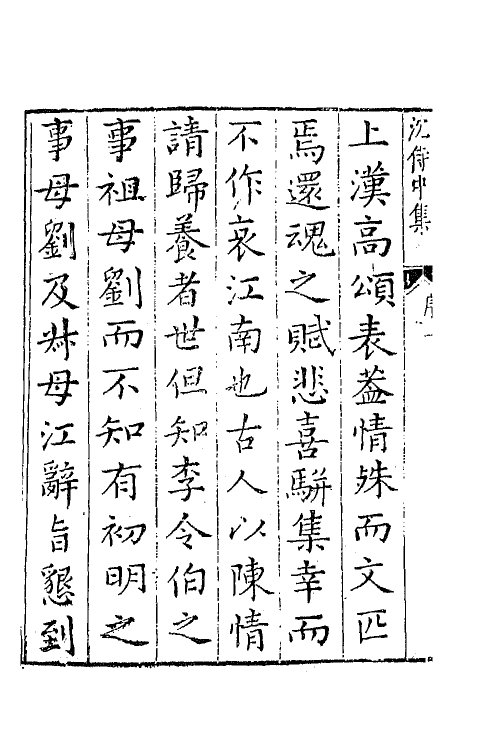 沈侍中集
序一
上漢高頌表葢情殊而文匹
焉還魂之賦悲喜駢集幸而
不作哀江南也古人以陳情
請歸養者世但知李令伯之
事祖母劉而不知有初明之
事母劉及叔母江辭旨懇到